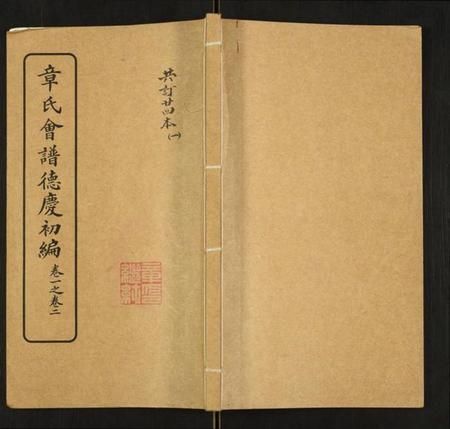 章氏會譜德慶初編 卷一之卷二
共訂廿四本(一)